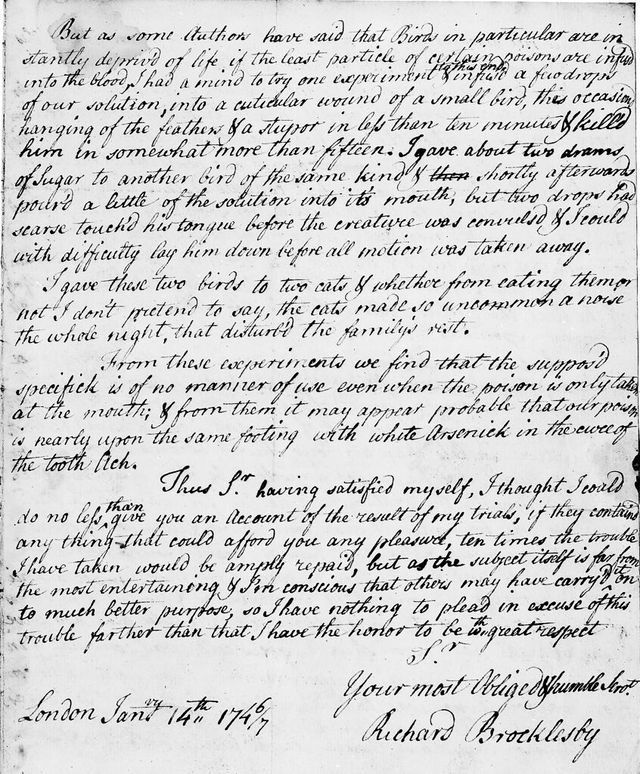 But as some Authors have said that Birds in particular are in
stantly depriv'd of life if the least particle of certain poisons are infus'd
into the blood, I had a mind to try one experiment & infus'd a few drops
of our solution, into a cuticular wound of a small bird, this occasion'd
hanging of the feathers & a stupor in less than ten minutes & killd
him in somewhat more than fifteen. I gave about two drams
of Sugar to another bird of the same kind & then shortly afterwards
pour'd a little of the solution into its mouth, but two drops had
scarse touch'd his tongue before the creature was convuls'd & I could
with difficulty lay him down before all motion was taken away.
I gave these two birds to two cats & whether from eating them or
not I don't pretend to say, the cats made so uncommon a noise
the whole night, that disturb'd the family's rist.
From these experiments we find that the suppos'd
specifick is of no manner of use even when the poison is only taken
at the mouth; & from them it may appear probable that our poison
is nearly upon the same footing with white Arsenick in the cure of
the tooth Ach.
Thus Sr. having satisfied myself, I thought I could
do no less than give you an Account of the result of my trials, if they contain
any thing that could afford you any pleasure, ten times the trouble
I have taken would be amply repaid, but as the subject itself is far from
the most entertaining & I'm conscious that others may have carry'd it on
to much better purpose, so I have nothing to plead in excuse of this
trouble farther than that I have the honor to be wth. great respect
Sr
Your most Obliged & humble Servt
London Janry 14th 1746/7
Richard Brocklesby